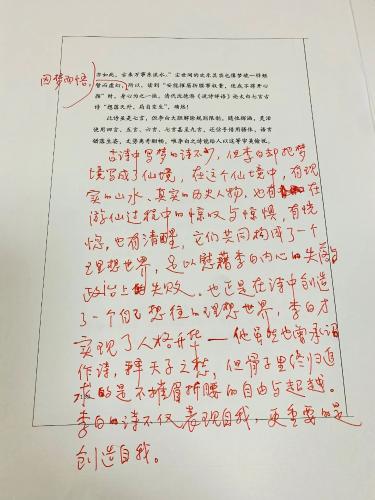 因梦而悟
亦如此,古来万事东流水。"尘世间的欢乐其实也像梦境一样短
暂而虚幻,所以,读到"安能摧眉折腰事权贵,使我不得开心
颜"时,身心为之一振。清代沈德潜《说诗晬语》论太白七言古
诗"想落天外,局自变生",确然!
此诗虽是七言,但李白大胆解除规则限制,随性挥洒,灵活
使用四言、五言、六言、七言甚至九言,还信手借用骚体,语言
错落生姿,文势离奇翻畅,唯李白之诗能给人以这等审美愉悦。
古诗中写梦的诗不少,但李白却把梦
境写成了仙境,在这个仙境中,有现
实的山水、真实的历史人物,也有在
游仙过程中的惊叹与惊惧,有恍
惚,也有清醒,它们共同构成了一个
理想世界,足以慰藉李白内心的失意
政治上的失败。也正是在诗中创造
了一个自己想往的理想世界,李白才
实现了人格升华——他虽然也曾承诏
作诗,释天子之愁,但骨子里终归追
求的是不摧眉折腰的自由与超越。
李白的诗不仅表现自我,更重要的是
创造自我。